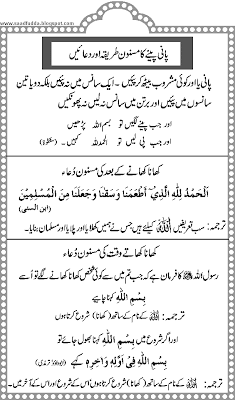 www.saadhudda.blogspot.com
پانی پینے کا مسنون طریقہ اور دعائیں
پانی یا اور کوئی مشروب بیٹھ کر پئیں۔ ایک سانس میں نہ پئیں بلکہ دو یا تین
سانسوں میں پئیں اور برتن میں سانس نہ لیں نہ پھونکیں
اور جب پینے لگیں تو بسم اللہ پڑھیں
اور جب پی لیں تو الحمد للہ کہیں۔ (مشکوٰۃ)
کھانا کھانے کے بعد کی مسنون دُعاء
اَلْحَمْدُ لِلّٰهِ الَّذِيْ اَطْعَمَنَا وَسَقٰنَا وَجَعَلَنَا مِنَ الْمُسْلِمِيْنَ
(ابن السنی)
ترجمہ: سب تعریفیں اللہ کیلئے ہیں جس نے ہمیں کھلایا اور پلایا اور مسلمان بنایا۔
کھانا کھاتے وقت کی مسنون دُعاء
رسول اللہ ﷺ کا فرمان ہے کہ جب تم میں سے کوئی شخص کھانا کھانے لگے تو اُسے
بِسْمِ اللّٰهِ کہنا چاہیے
ترجمہ: اللہ کے نام کے ساتھ (کھانا) شروع کرتا ہوں
اور اگر شروع میں بِسْمِ اللّٰهِ کہنا بھول جائے تو
بِسْمِ اللّٰهِ فِيْ اَوَّلِهٖ وَاٰخِرِهٖ کہے (ابوداؤد ترمذی)
ترجمہ: اللہ کے نام کے ساتھ (کھانا) شروع کرتا ہوں اس کے شروع اور اس کے آخر میں۔